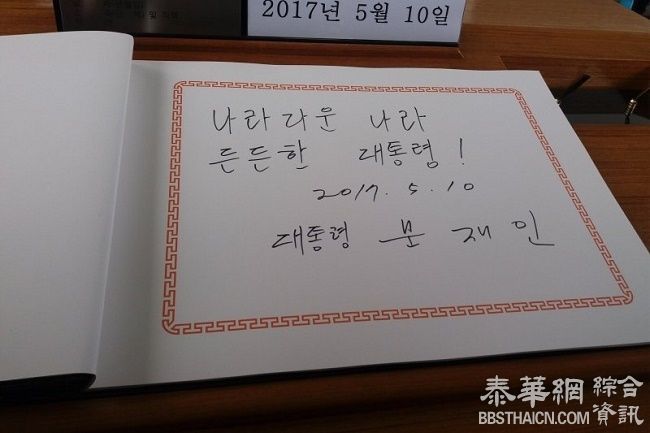 2017년 5월 10일
나라다운 나라
든든한 대통령!
2017. 5. 10
대통령 문재인
泰華網 綜合資訊
BBSTHAICN.COM